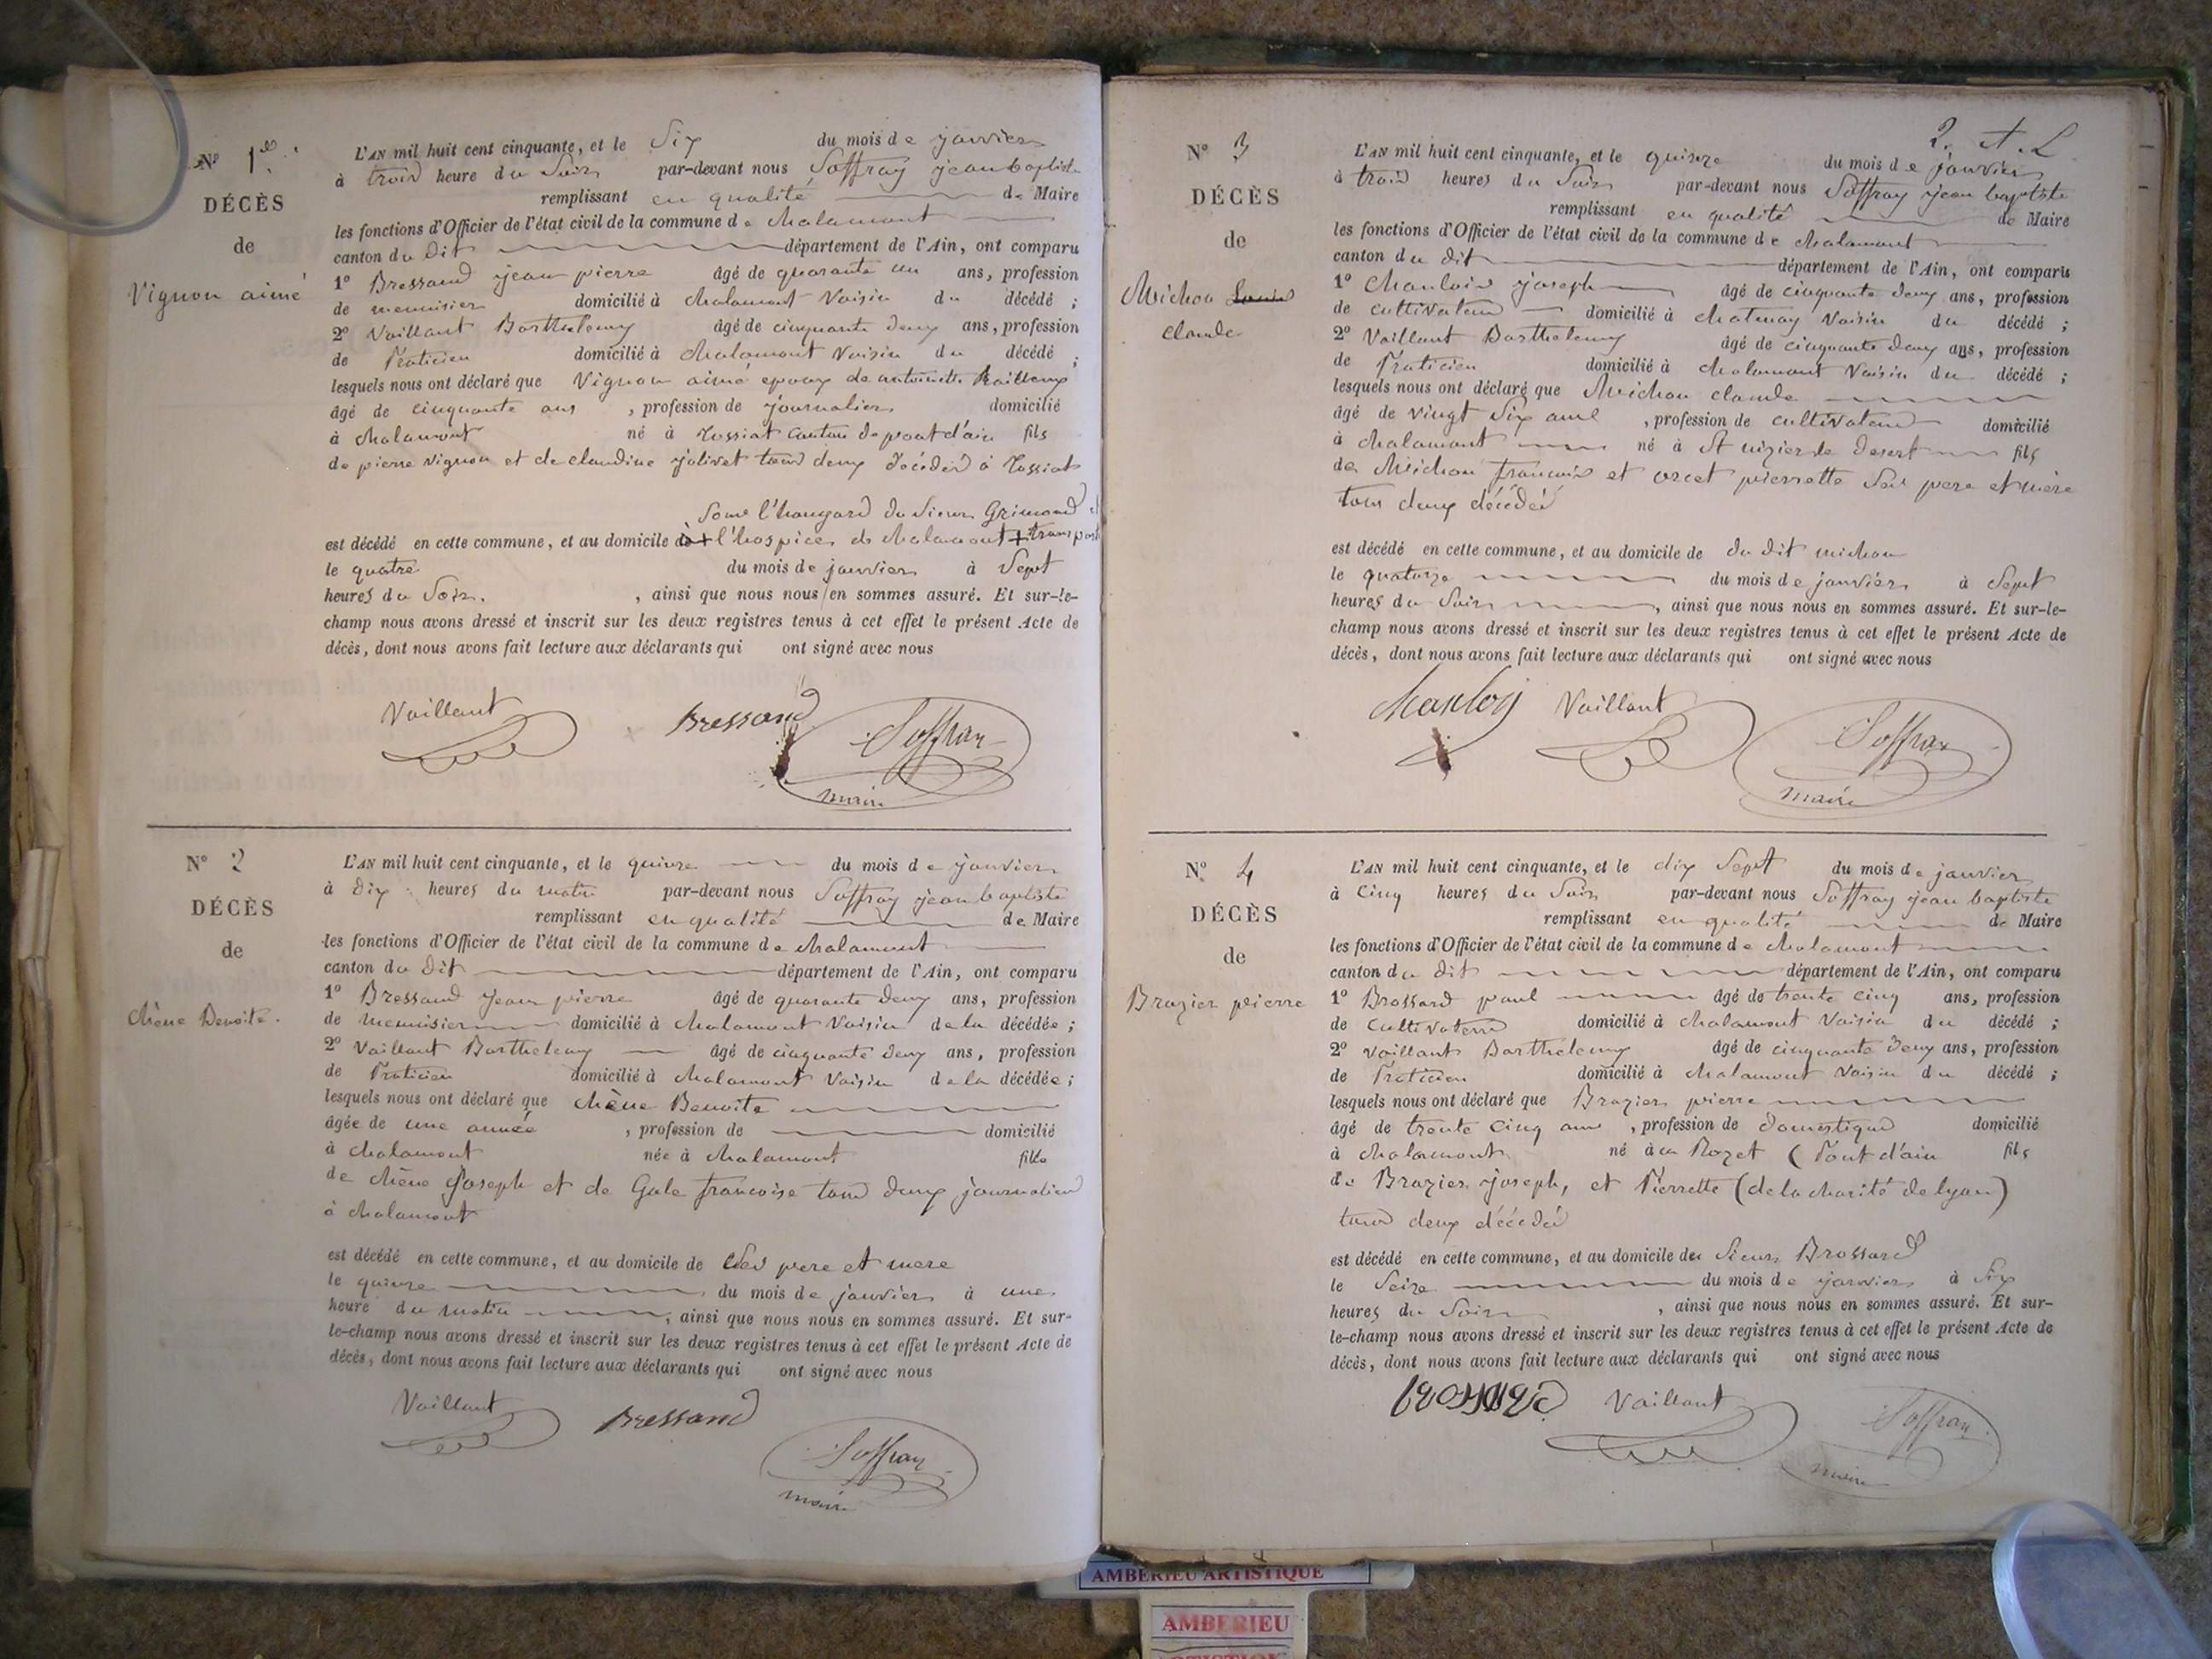 N° 1er
DÉCÈS
de
Vignon aimé
L'AN mil huit cent cinquante, et le Six du mois de janvier
à trois heure du Soir par-devant nous Soffray jean baptiste
remplissant en qualité de Maire
les fonctions d'Officier de l'état civil de la commune de chalamont
canton du dit département de l'Ain, ont comparu
1° Bressand jean pierre âgé de quarante un ans, profession
de menuisier domicilié à chalamont Voisin du décédé ;
2° Vaillant Barthelemy âgé de cinquante deux ans, profession
de Praticien domicilié à chalamont Voisin du décédé ;
lesquels nous ont déclaré que Vignon aimé epoux de antoinette
âgé de cinquante ans , profession de journalier domicilié
à chalamont né à Tossiat canton de pont d'ain fils
de pierre vignon et de claudine jolivet tous deux décédés à Tossiat
Sous l'hangard du Sieur Grimand et
est décédé en cette commune, et au domicile de + l'hospice de chalamont + transporté
le quatre du mois de janvier à Sept
heures du Soir. , ainsi que nous nous en sommes assuré. Et sur-le-
champ nous avons dressé et inscrit sur les deux registres tenus à cet effet le présent Acte de
décès, dont nous avons fait lecture aux déclarants qui ont signé avec nous
Vaillant Bressand Soffray
maire
N° 2
DÉCÈS
de
chêne Benoite.
L'AN mil huit cent cinquante, et le quinze du mois de janvier
à dix heures du matin par-devant nous Soffray jean baptiste
remplissant en qualité de Maire
les fonctions d'Officier de l'état civil de la commune de chalamont
canton du dit département de l'Ain, ont comparu
1° Bressand jean pierre âgé de quarante deux ans, profession
de menuisier domicilié à chalamont Voisin de la décédée ;
2° Vaillant Barthelemy âgé de cinquante deux ans, profession
de Praticien domicilié à chalamont Voisin de la décédée ;
lesquels nous ont déclaré que chêne Benoite
âgée de une année , profession de domicilié
à chalamont née à chalamont fille
de chêne joseph et de Gale francoise tous deux journaliers
à chalamont
est décédé en cette commune, et au domicile de ses pere et mere
le quinze du mois de janvier à une
heure du matin , ainsi que nous nous en sommes assuré. Et sur-
le-champ nous avons dressé et inscrit sur les deux registres tenus à cet effet le présent Acte de
décès, dont nous avons fait lecture aux déclarants qui ont signé avec nous
Vaillant Bressand Soffray
maire
2. A.L
N° 3
DÉCÈS
de
Michon Louis
claude
L'AN mil huit cent cinquante, et le quinze du mois de janvier
à trois heures du Soir par-devant nous Soffray jean baptiste
remplissant en qualité de Maire
les fonctions d'Officier de l'état civil de la commune de chalamont
canton du dit département de l'Ain, ont comparu
1° chanloix joseph âgé de cinquante deux ans, profession
de cultivateur domicilié à chatenay Voisin du décédé ;
2° Vaillant Barthelemy âgé de cinquante deux ans, profession
de Praticien domicilié à chalamont Voisin du décédé ;
lesquels nous ont déclaré que Michon claude
âgé de vingt Six ans , profession de cultivateur domicilié
à chalamont né à St nizier le desert fils
de Michon françois et orcet pierrette Ses pere et mère
tous deux décédés
est décédé en cette commune, et au domicile de du dit michon
le quatorze du mois de janvier à Sept
heures du Soir , ainsi que nous nous en sommes assuré. Et sur-le-
champ nous avons dressé et inscrit sur les deux registres tenus à cet effet le présent Acte de
décès, dont nous avons fait lecture aux déclarants qui ont signé avec nous
Vaillant Soffray
maire
N° 4
DÉCÈS
de
Brazier pierre
L'AN mil huit cent cinquante, et le dix Sept du mois de janvier
à cinq heures du Soir par-devant nous Soffray jean baptiste
remplissant en qualité de Maire
les fonctions d'Officier de l'état civil de la commune de chalamont
canton du dit département de l'Ain, ont comparu
1° Brossard paul âgé de trente cinq ans, profession
de cultivateur domicilié à chalamont Voisin du décédé ;
2° vaillant Barthelemy âgé de cinquante deux ans, profession
de Praticien domicilié à chalamont Voisin du décédé ;
lesquels nous ont déclaré que Brazier pierre
âgé de trente cinq ans , profession de domestique domicilié
à chalamont né à (Pont d'ain fils
de Brazier joseph, et Pierrette (de la charité de lyon)
tous deux décédés
est décédé en cette commune, et au domicile du Sieur Brossard
le Seize du mois de janvier à Six
heures du Soir , ainsi que nous nous en sommes assuré. Et sur-
le-champ nous avons dressé et inscrit sur les deux registres tenus à cet effet le présent Acte de
décès, dont nous avons fait lecture aux déclarants qui ont signé avec nous
Vaillant Soffray
maire
AMBERIEU ARTISTIQUE
AMBERIEU
ARTISTIQUE